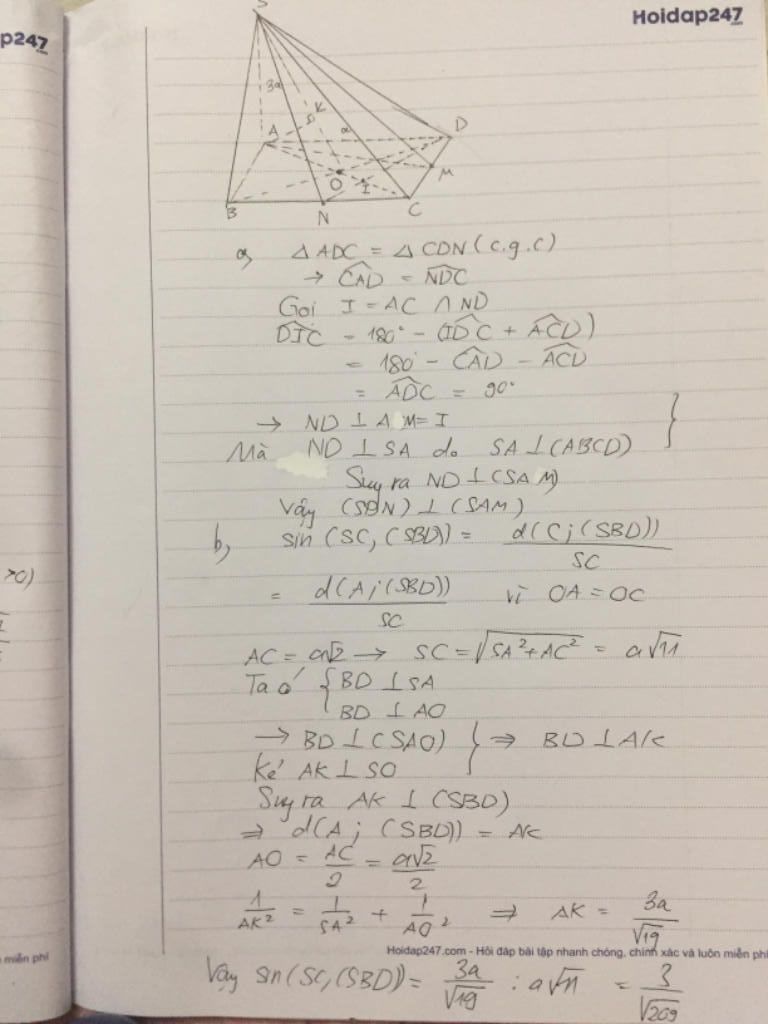 Hoidap247
p247
S
3a
K
A
a
D
O
I
M
B
N
C
a, Δ ADC = Δ CDN (c.g.c)
→ \widehat{CAD} = \widehat{NDC}
Gọi I = AC ∩ ND
\widehat{DIC} = 180° - (\widehat{IDC} + \widehat{ACD})
= 180° - \widehat{CAD} - \widehat{ACD}
= \widehat{ADC} = 90°
→ ND ⊥ AM = I
Mà ND ⊥ SA do SA ⊥ (ABCD)
Suy ra ND ⊥ (SAM)
Vậy (SDN) ⊥ (SAM)
b, sin (SC, (SBD)) = d(C; (SBD)) / SC
= d(A; (SBD)) / SC vì OA = OC
AC = a√2 → SC = √(SA² + AC²) = a√11
Ta có { BD ⊥ SA
BD ⊥ AO
→ BD ⊥ (SAO) } ⇒ BD ⊥ AK
Kẻ AK ⊥ SO
Suy ra AK ⊥ (SBD)
⇒ d(A; (SBD)) = AK
AO = AC/2 = a√2/2
1/AK² = 1/SA² + 1/AO² ⇒ AK = 3a/√19
Hoidap247.com - Hỏi đáp bài tập nhanh chóng, chính xác và luôn miễn phí
Vậy sin(SC,(SBD)) = 3a/√19 : a√11 = 3/√209
>0)
miễn phí